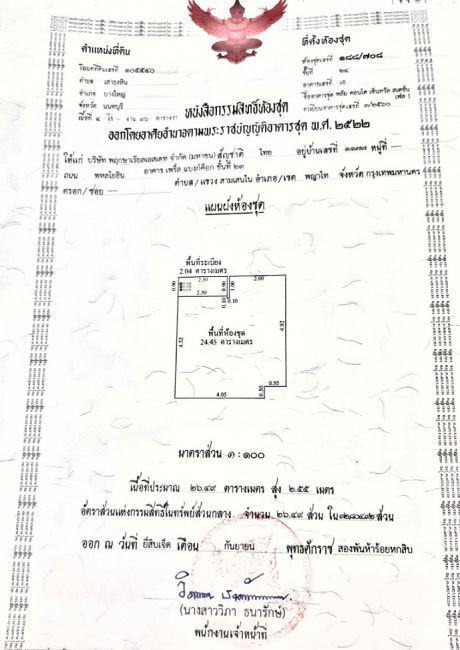 ตำแหน่งที่ดิน
ที่ตั้งห้องชุด
โฉนดที่ดินเลขที่ ๑๐๕๕๔๐
ห้องชุดเลขที่ ๑๘๘/๗๐๘
ตำบล เสาธงหิน
ชั้นที่ ๒๔
อำเภอ บางใหญ่
อาคารเลขที่ เอ
จังหวัด นนทบุรี
ชื่ออาคารชุด พลัม คอนโด เซ็นทรัล สเตชั่น เฟส 1
เนื้อที่ ๔ ไร่ - งาน ๔๖ ตารางวา
ทะเบียนอาคารชุดเลขที่ ๗/๒๕๖๐
หนังสือกรรมสิทธิ์ห้องชุด
ออกโดยอาศัยอำนาจตามพระราชบัญญัติอาคารชุด พ.ศ. ๒๕๒๒
ให้แก่ บริษัท พฤกษาเรียลเอสเตท จำกัด (มหาชน) สัญชาติ ไทย อยู่บ้านเลขที่ ๑๑๗๗ หมู่ที่ —
ถนน พหลโยธิน อาคาร เพิร์ล แบงก์ค็อก ชั้นที่ ๒๓
ตรอก/ซอย — ตำบล/แขวง สามเสนใน อำเภอ/เขต พญาไท จังหวัด กรุงเทพมหานคร
แผนผังห้องชุด
พื้นที่ระเบียง
2.04 ตารางเมตร
2.30
2.60
0.90
0.90
1.00
2.30
0.10
0.10
พื้นที่ห้องชุด
24.45 ตารางเมตร
4.52
4.92
4.05
0.50
0.95
มาตราส่วน ๑ : ๑๐๐
เนื้อที่ประมาณ ๒๖.๔๙ ตารางเมตร สูง ๒.๕๕ เมตร
อัตราส่วนแห่งกรรมสิทธิ์ในทรัพย์ส่วนกลาง จำนวน ๒๖.๔๙ ส่วน ใน ส่วน
ออก ณ วันที่ ยี่สิบเจ็ด เดือน กันยายน พุทธศักราช สองพันห้าร้อยหกสิบ
(นางสาววิภา ธนารักษ์)
พนักงานเจ้าหน้าที่